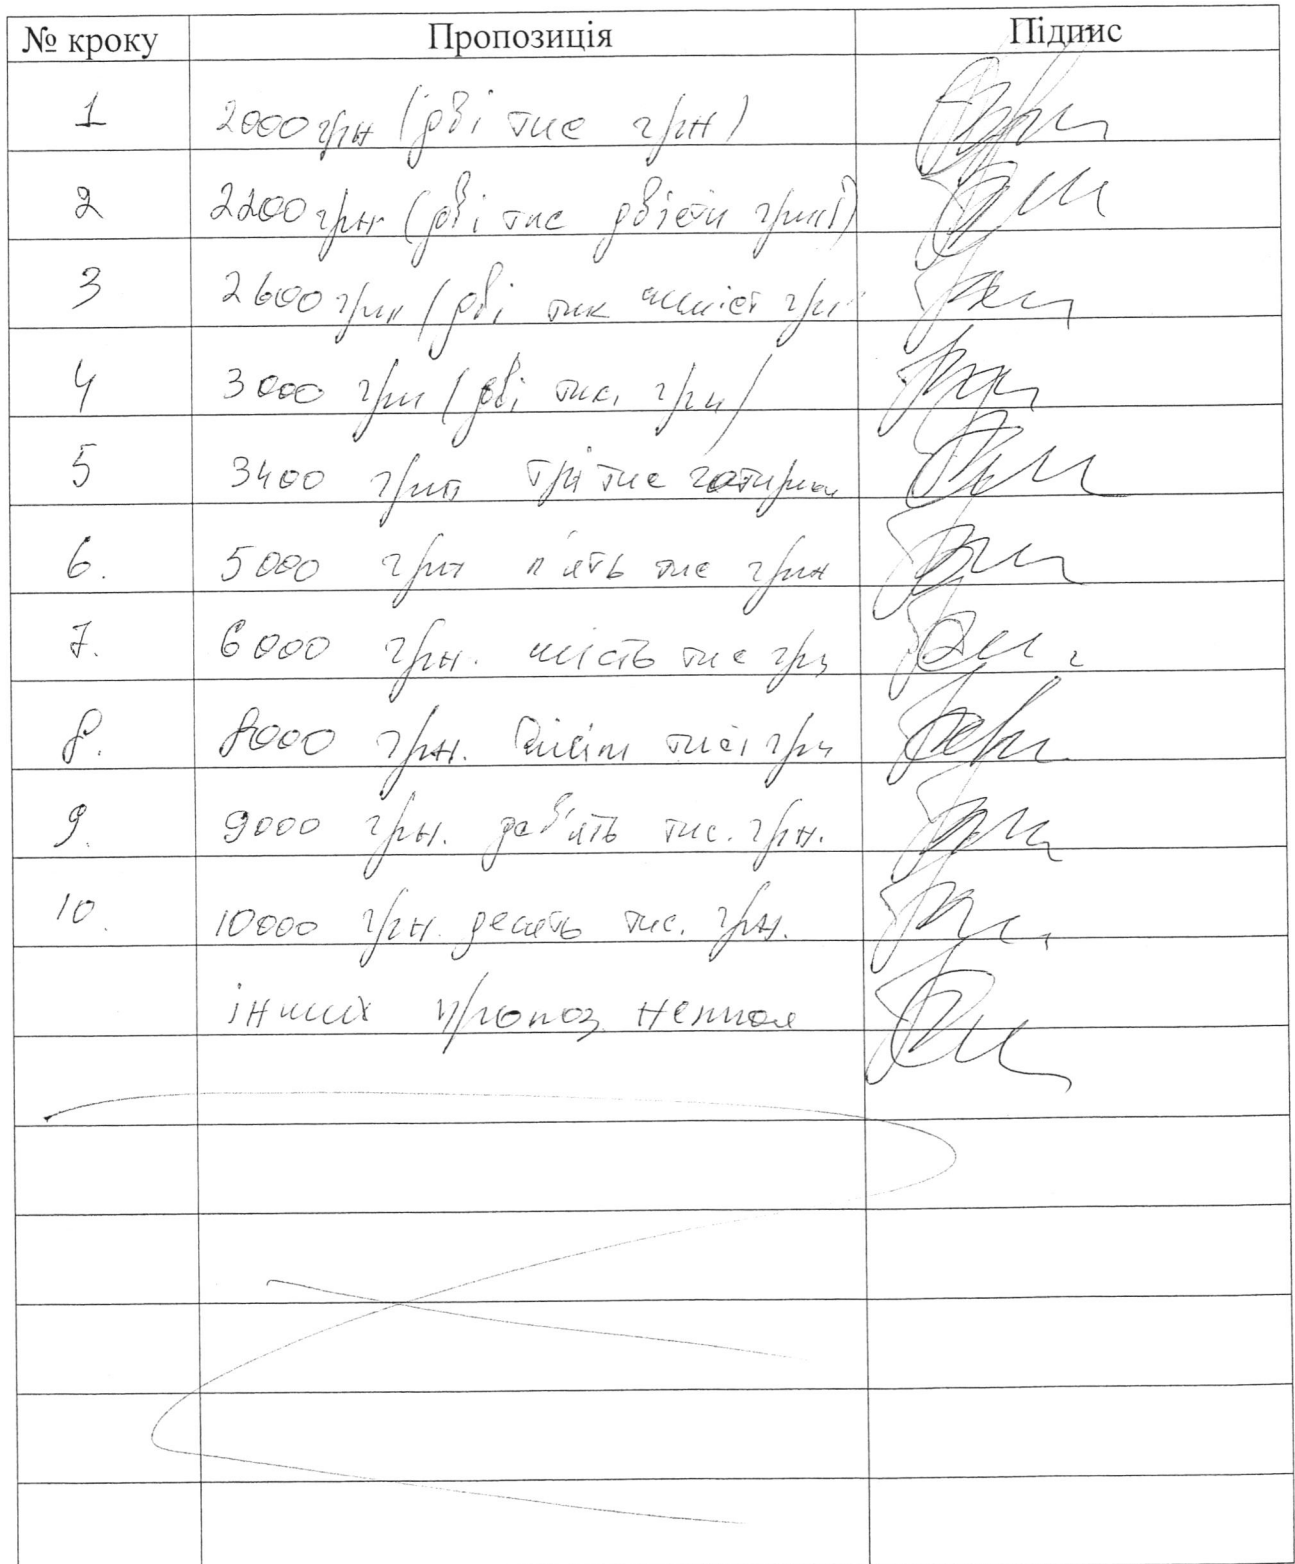 № кроку Пропозиція Підпис
1 2000 грн (дві тис грн)
2 2200 грн (дві тис двісти грн)
3 2600 грн (дві тис шшіст грн
4 3000 грн (дві тис. грн)
5 3400 грн трі тис чотирис
6. 5000 грн п'ять тис грн
7. 6000 грн. шість тис грн
8. 8000 грн. тисі грн
9. 9000 грн. дев'ять тис. грн.
10. 10000 грн. десять тис. грн.
інших пропоз немае